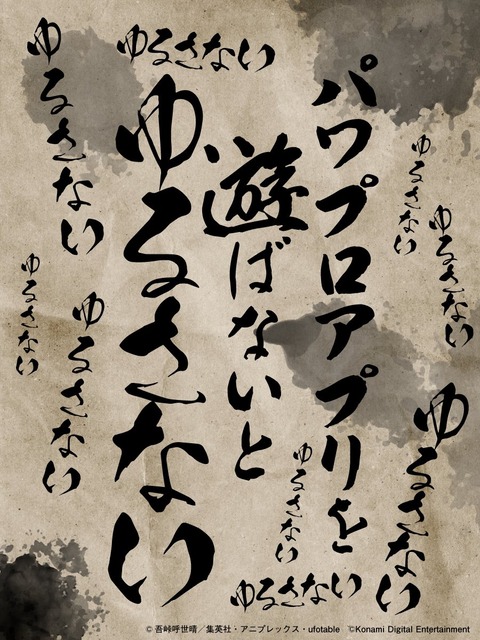 パワプロアプリを
遊ばないと
ゆるさない
ゆるさない
ゆるさない
ゆるさない
ゆるさない
ゆるさない
ゆるさない
ゆるさない
ゆるさない
ゆるさない
ゆるさない
© 吾峠呼世晴／集英社・アニプレックス・ufotable ©Konami Digital Entertainment